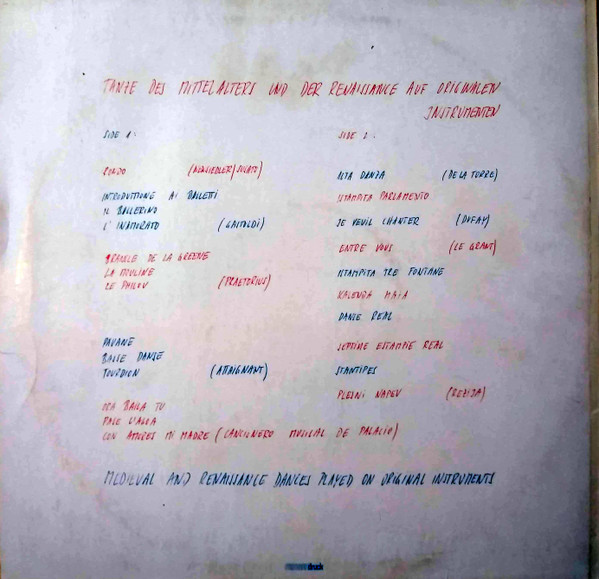 TANZE DES MITTELALTERS UND DER RENAISSANCE AUF ORIGINALEN
INSTRUMENTEN
SIDE 1:
RONDO (NEUSIEDLER/SUSATO)
INTRODUTTIONE AI BALLETTI
IL BALLERINO
L'INAMORATO (GASTOLDI)
BRANSLE DE LA GREENE
LA MOULINE
LE PHILOU (PRAETORIUS)
PAVANE
BASSE DANSE
TOURDION (ATTAIGNANT)
OCA BAILA TU
PASE L'AGOA
CON AMORES MI MADRE (CANCIONERO MUSICAL DE PALACIO)
SIDE 2:
ALTA DANZA (DE LA TORRE)
ISTAMPITA PARLAMENTO
JE VEUIL CHANTER (DUFAY)
ENTRE VOUS (LE GRANT)
ISTAMPITA TRE FONTANE
KALENDA MAIA
DANSE REAL
SEPTIME ESTAMPIE REAL
STANTIPES
PLESNI NAPEV (REZIJA)
MEDIEVAL AND RENAISSANCE DANCES PLAYED ON ORIGINAL INSTRUMENTS
druck